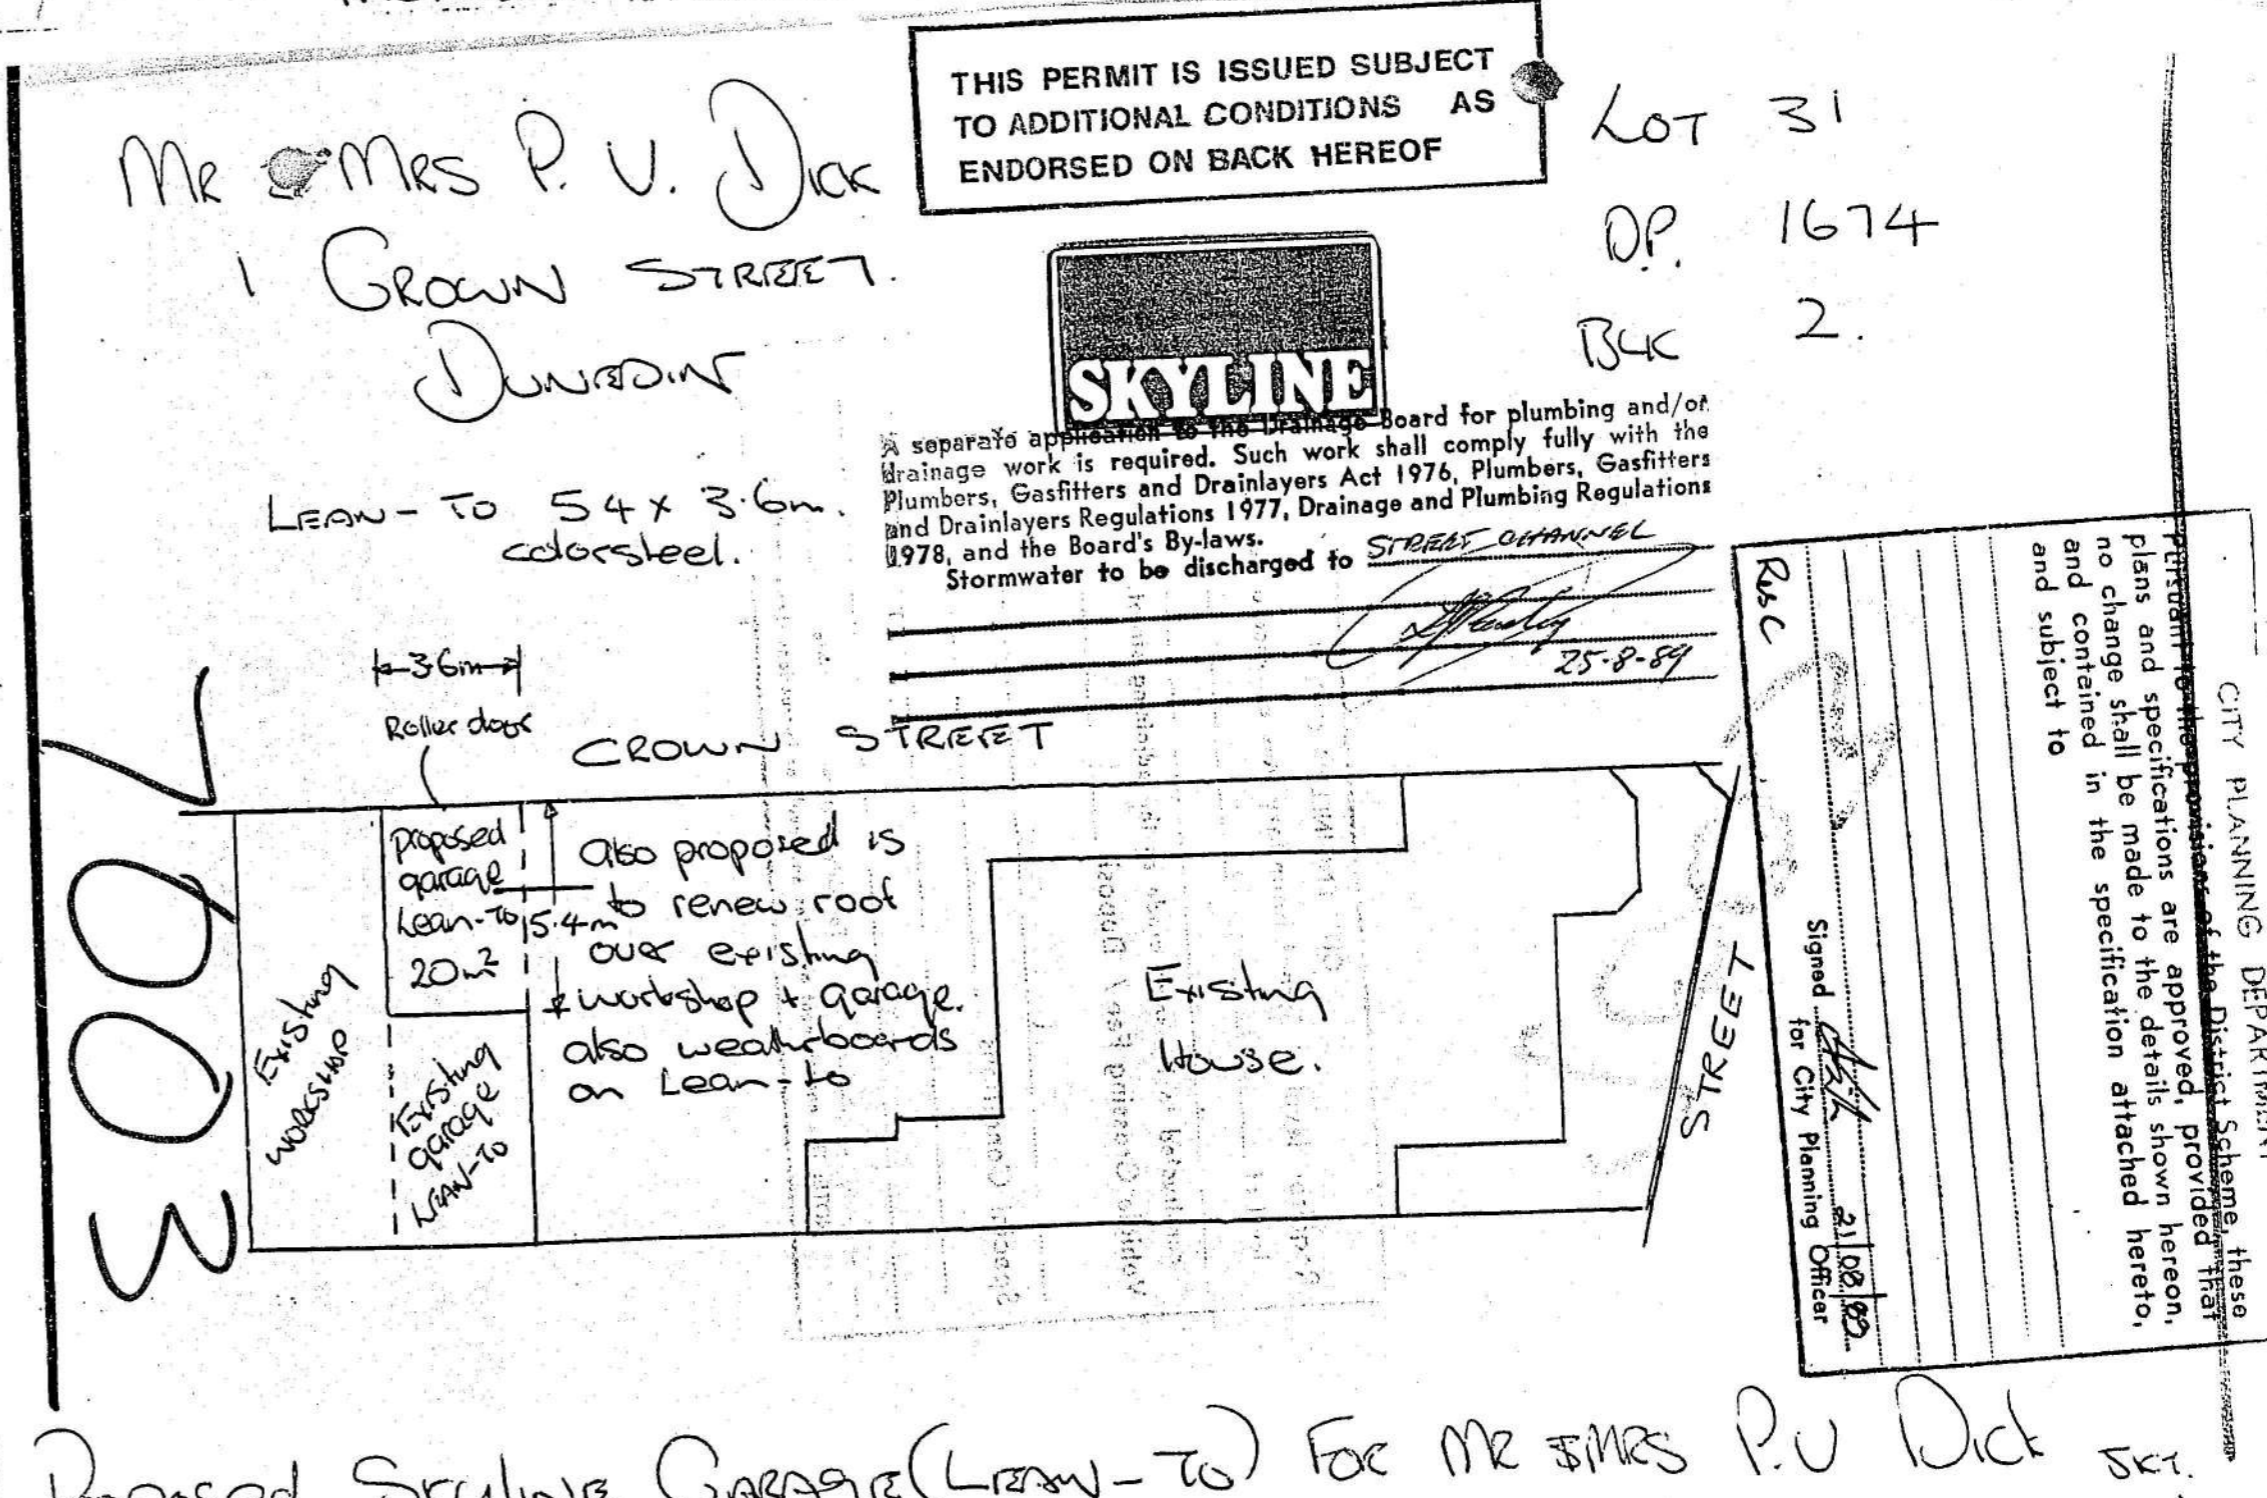 THIS PERMIT IS ISSUED SUBJECT
TO ADDITIONAL CONDITIONS AS
ENDORSED ON BACK HEREOF
MR & MRS P. V. DICK
1 CROWN STREET.
DUNEDIN
LOT 31
DP. 1674
BLK 2.
SKYLINE
LEAN-TO 54 x 3.6m.
colorsteel.
A separate application to the Drainage Board for plumbing and/or
drainage work is required. Such work shall comply fully with the
Plumbers, Gasfitters and Drainlayers Act 1976, Plumbers, Gasfitters
and Drainlayers Regulations 1977, Drainage and Plumbing Regulations
1978, and the Board's By-laws.
Stormwater to be discharged to STREET CHANNEL
25-8-89
3.6m
Roller door
CROWN STREET
3007
proposed
garage
Lean-To
20m²
5.4m
also proposed is
to renew roof
over existing
workshop + garage.
also weatherboards
on Lean-to
Existing
WORKSHOP
Existing
garage
LEAN-TO
Existing
House.
STREET
CITY PLANNING DEPARTMENT
Pursuant to the provisions of the District Scheme, these
plans and specifications are approved, provided that
no change shall be made to the details shown hereon,
and contained in the specification attached hereto,
and subject to
Res C
Signed 21/08/89
for City Planning Officer
Proposed SKYLINE GARAGE (LEAN-TO) FOR MR & MRS P.V DICK